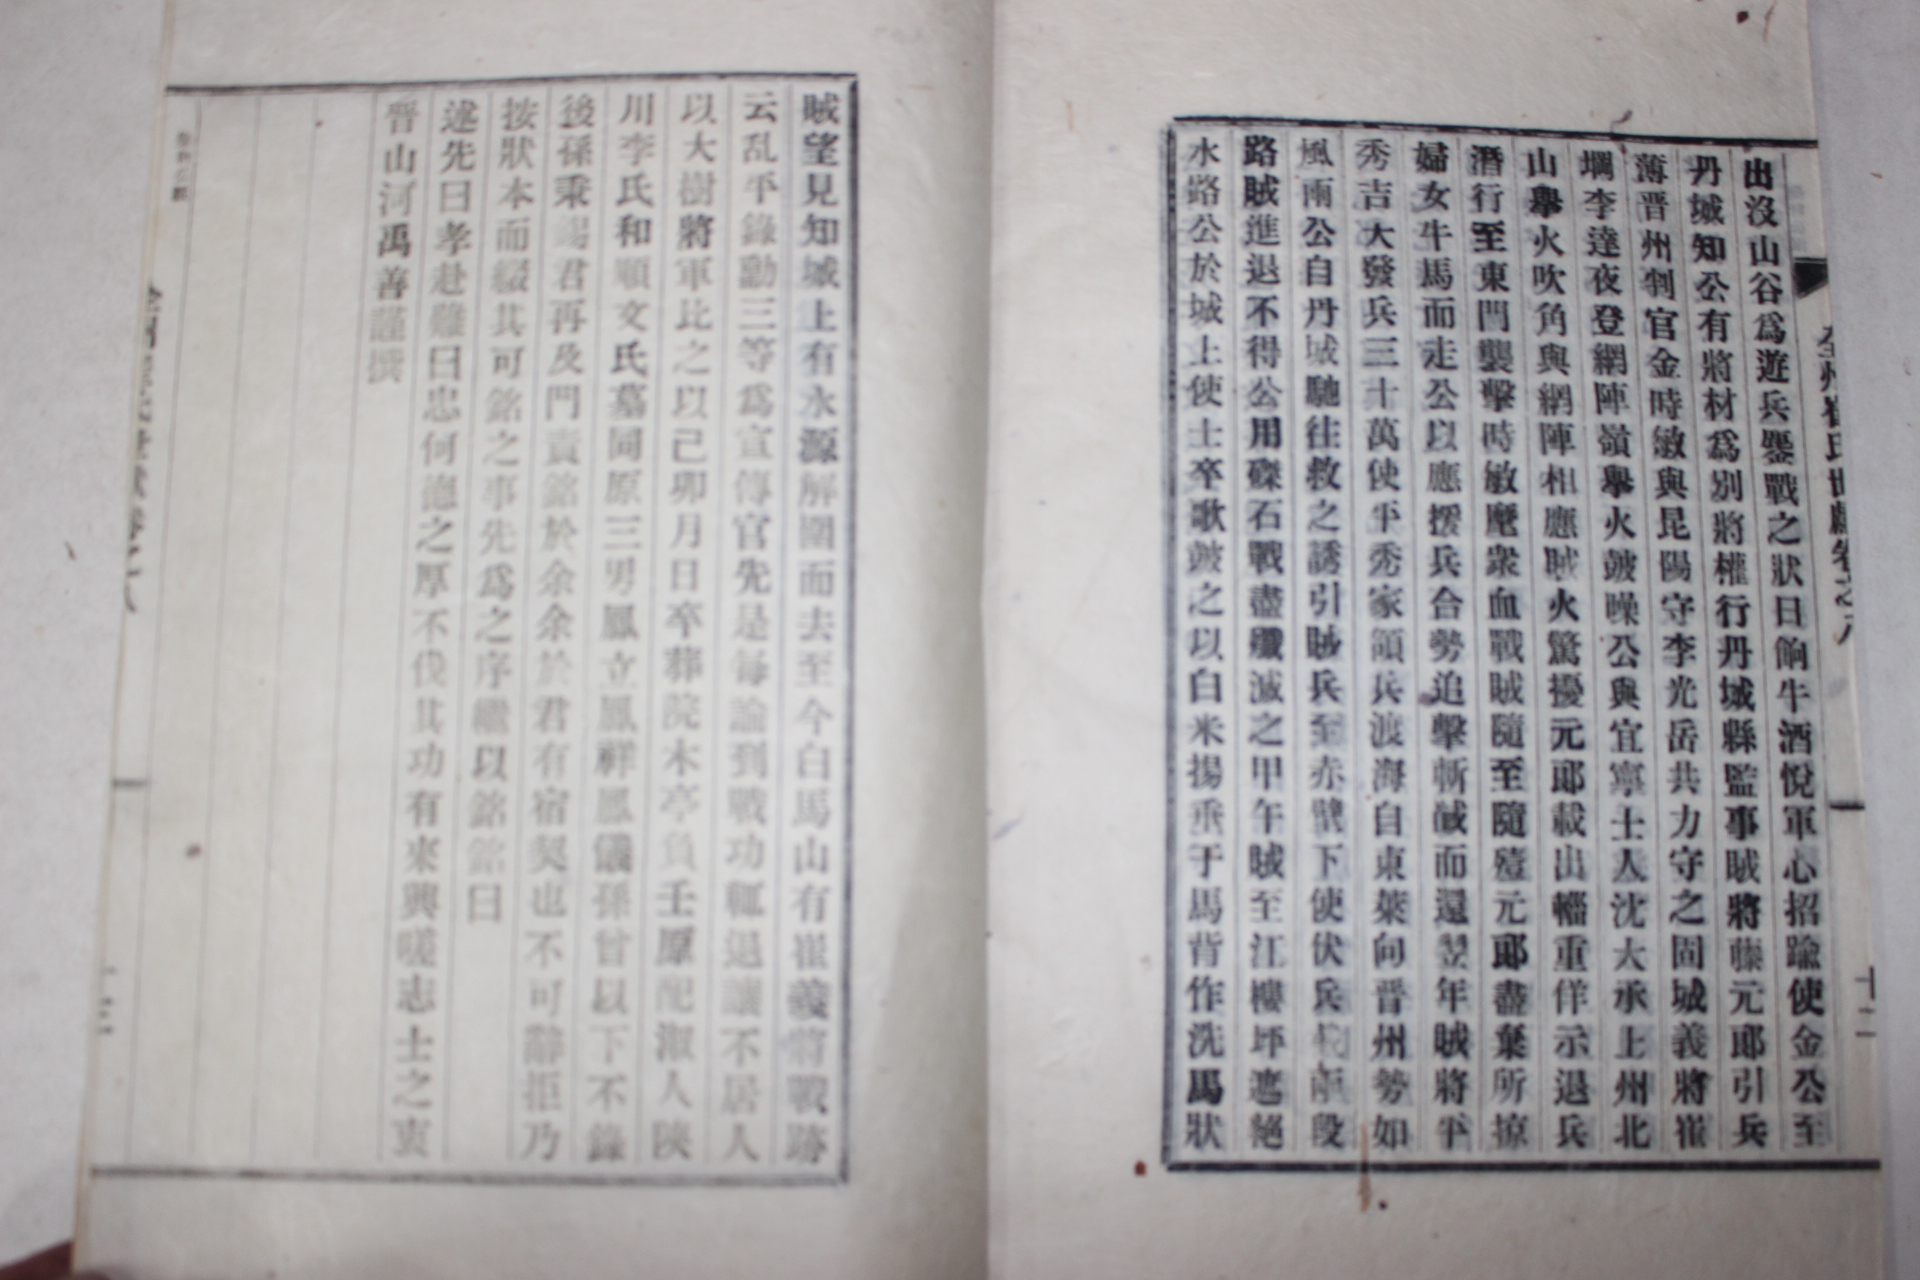 全州崔氏世獻卷之八
十二
出沒山谷爲遊兵鏖戰之狀日餉牛酒悅軍心招踰使金公至
丹城知公有將材爲別將權行丹城縣監事賊將藤元郎引兵
薄晋州判官金時敏與昆陽守李光岳共力守之固城義將崔
堈李達夜登網陣嶺擧火皷噪公與宜寧士人沈大承上州北
山擧火吹角與網陣相應賊火驚擾元郎載出輜重佯示退兵
潛行至東門襲擊時敏麾衆血戰賊隨至隨殪元郎盡棄所掠
婦女牛馬而走公以應援兵合勢追擊斬馘而還翌年賊將平
秀吉大發兵三十萬使平秀家領兵渡海自東萊向晋州勢如
風雨公自丹城馳往救之誘引賊兵至赤壁下使伏兵兩段
路賊進退不得公用礫石戰盡殲滅之甲午賊至江樓坪遮絕
水路公於城上使士卒歌皷之以白米揚垂于馬背作洗馬狀
賊望見知城上有永源解圍而去至今白馬山有崔義將戰跡
云乱平錄勳三等爲宣傳官先是每論到戰功輒退讓不居人
以大樹將軍比之以己卯月日卒葬院木亭負壬原配淑人陜
川李氏和順文氏墓同原三男鳳立鳳祥鳳儀孫曾以下不錄
後孫秉錫君再及門責銘於余余於君有宿契也不可辭拒乃
按狀本而綴其可銘之事先爲之序繼以銘銘曰
述先曰孝赴難曰忠何德之厚不伐其功有來興嗟志士之衷
晉山河禹善謹撰
全州崔氏世獻卷之八
十三